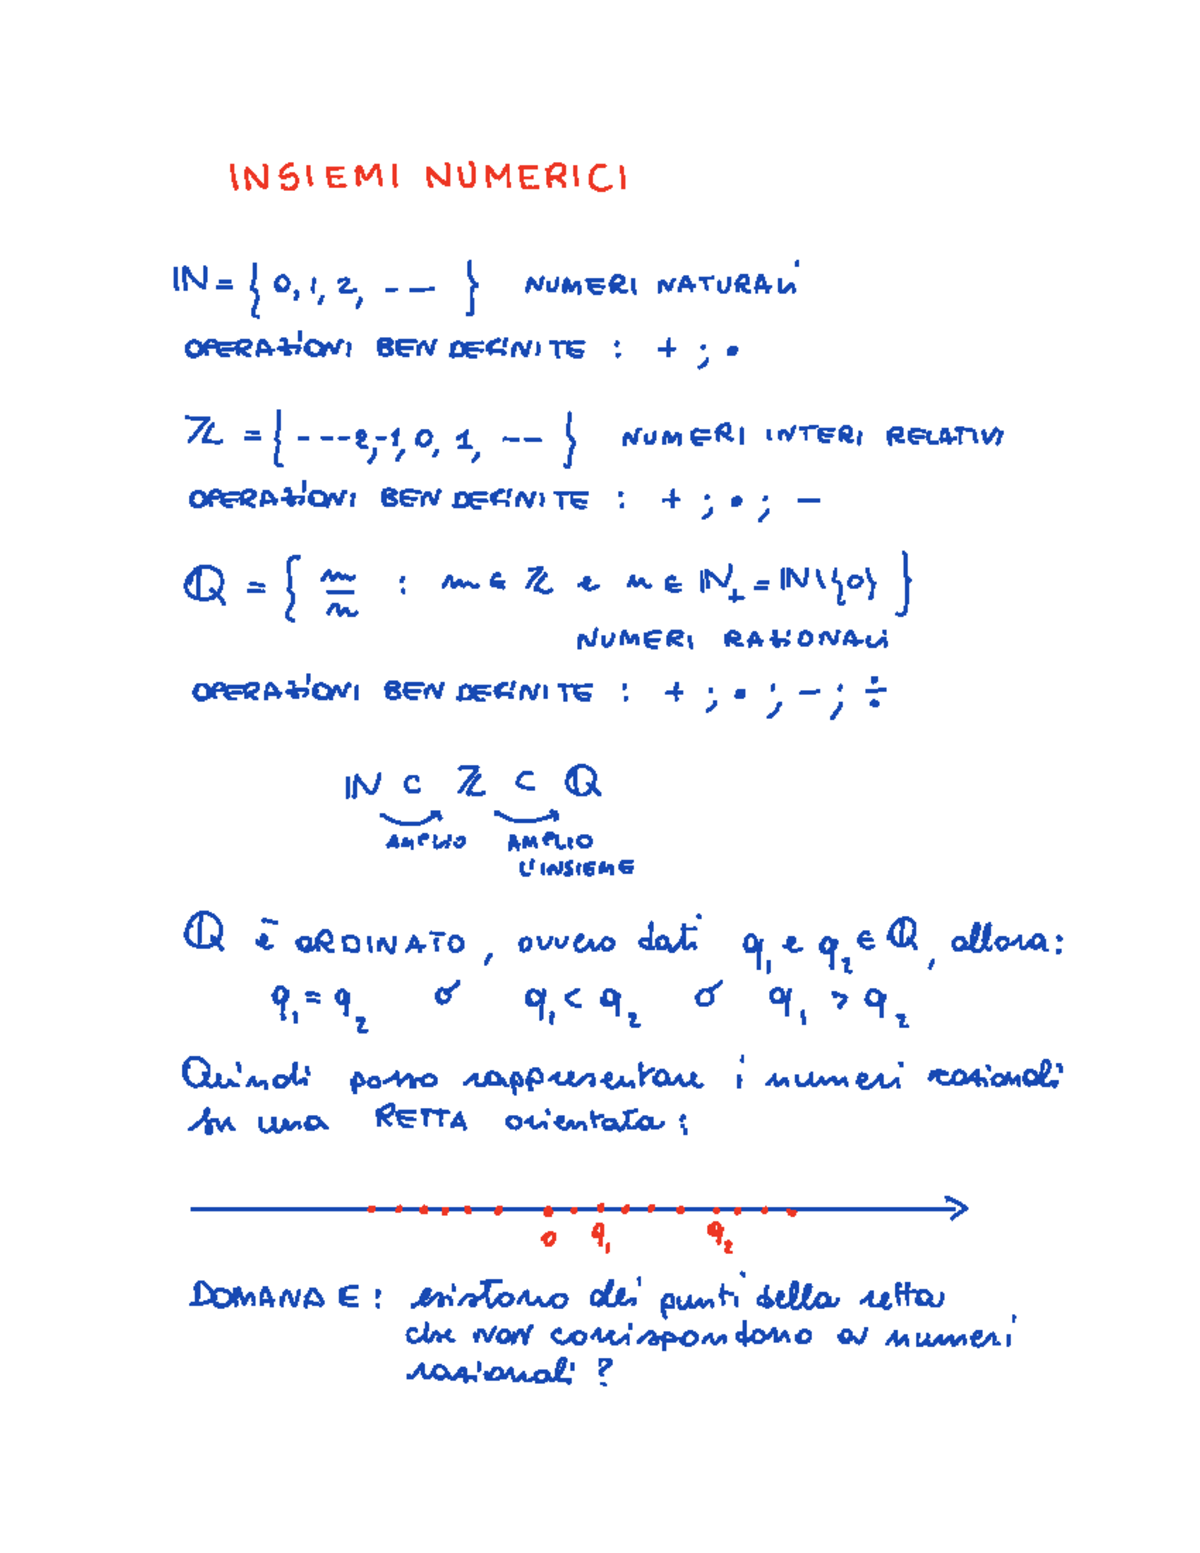 INSIEMI NUMERICI
ℕ = { 0, 1, 2, --- } NUMERI NATURALI
OPERAZIONI BEN DEFINITE : + ; •
ℤ = { --- -2, -1, 0, 1, --- } NUMERI INTERI RELATIVI
OPERAZIONI BEN DEFINITE : + ; • ; −
ℚ = { m/n : m ∈ ℤ e n ∈ ℕ₊ = ℕ\{0} }
NUMERI RAZIONALI
OPERAZIONI BEN DEFINITE : + ; • ; − ; ÷
ℕ ⊂ ℤ ⊂ ℚ
AMPLIO AMPLIO
L'INSIEME
ℚ è ORDINATO, ovvero dati q₁ e q₂ ∈ ℚ, allora:
q₁ = q₂ o q₁ < q₂ o q₁ > q₂
Quindi posso rappresentare i numeri razionali
su una RETTA orientata :
0 q₁ q₂
DOMANDE : esistono dei punti della retta
che NON corrispondono a numeri
razionali ?